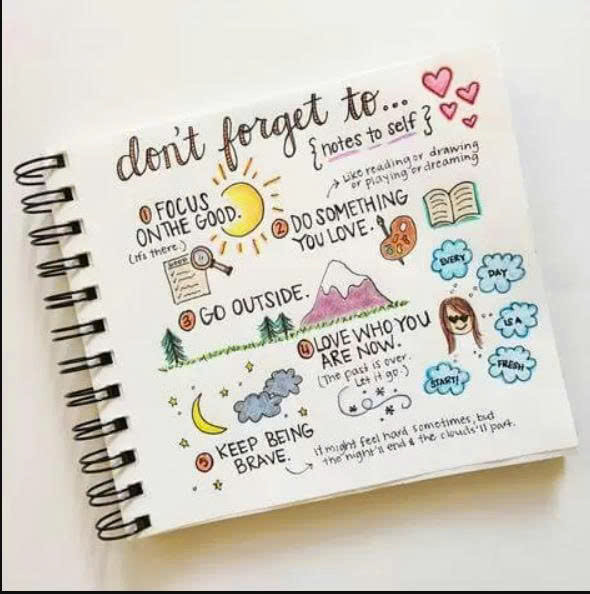 don't forget to...
{notes to self}
Like reading or drawing
or playing or dreaming
① FOCUS
ON THE GOOD.
(it's there.)
② DO SOMETHING
YOU LOVE.
GOOD
③ GO OUTSIDE.
④ LOVE WHO YOU
ARE NOW.
(The past is over.
Let it go.)
EVERY
DAY
IS A
FRESH
START!
⑤ KEEP BEING
BRAVE.
it might feel hard sometimes, but
the night'll end & the clouds'll part.